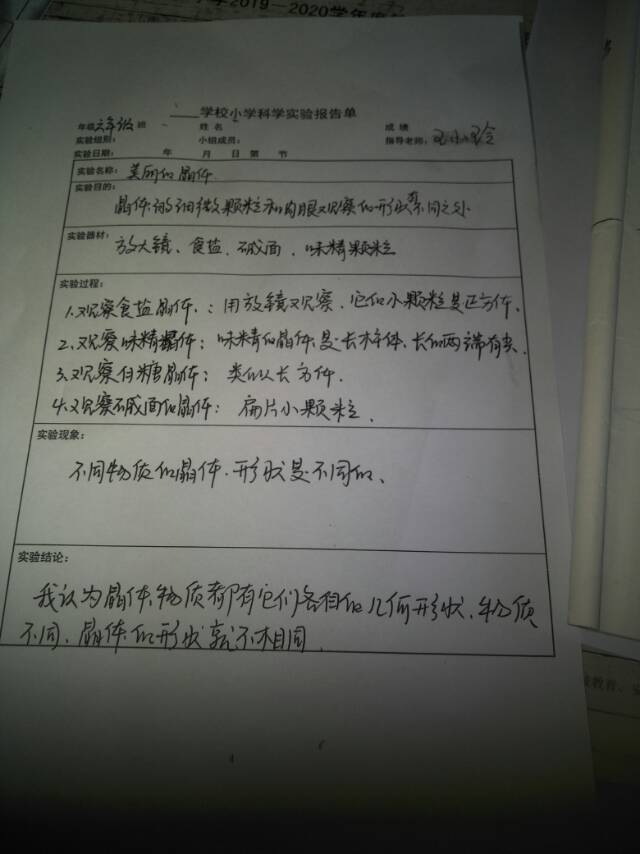 2019—2020学年度
____学校小学科学实验报告单
年级六年级 班 姓名 成绩
实验组别： 小组成员： 指导老师：
实验日期： 年 月 日 第 节
实验名称：美丽的晶体
实验目的：
晶体的细微颗粒和肉眼观察的形状有不同之处
实验器材：
放大镜、食盐、碱面、味精颗粒
实验过程：
1.观察食盐晶体：用放镜观察，它的小颗粒是正方体、
2、观察味精晶体：味精的晶体是长柱体、长的两端有尖
3、观察白糖晶体：类似长方体．
4.观察碱面的晶体：扁片小颗粒、
实验现象：
不同物质的晶体、形状是不同的、
实验结论：
我认为晶体物质都有它们各相的几何形状、物质
不同、晶体的形状就不相同．